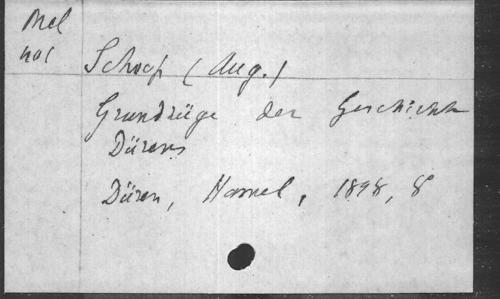 Mel
401
Schoop (Aug.)
Grundzüge der Geschichte
Dürens
Düren, Hamel, 1898, 8°